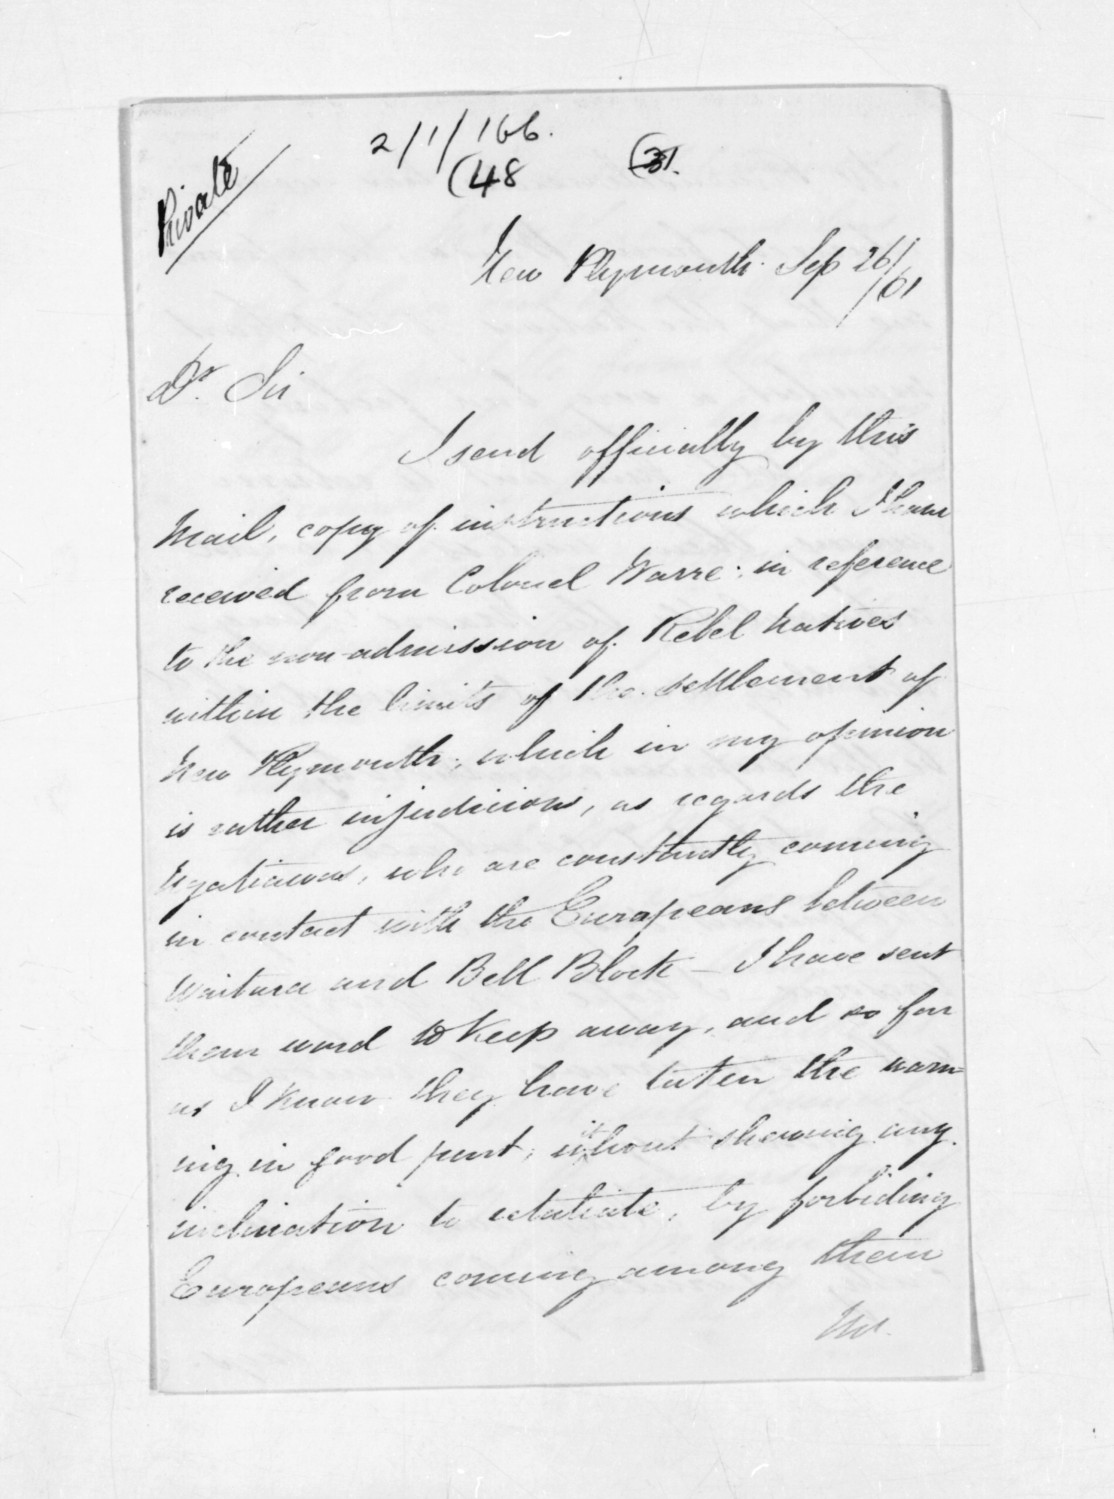 Private
2/1/166.
(48
(31.
New Plymouth. Sep 26/
/61
Dr. Sir
I send officially by this
Mail, copy of instructions which I have
received from Colonel Warre; in reference
to the non-admission of Rebel Natives
within the limits of the settlement of
New Plymouth; which in my opinion
is rather injudicious, as regards the
Ngatiawas, who are constantly coming
in contact with the Europeans between
Waitara and Bell Block - I have sent
them word to keep away, and so far
as I know they have taken the warn
ing in good part, without shewing any
inclination to retaliate, by forbiding
Europeans coming among them